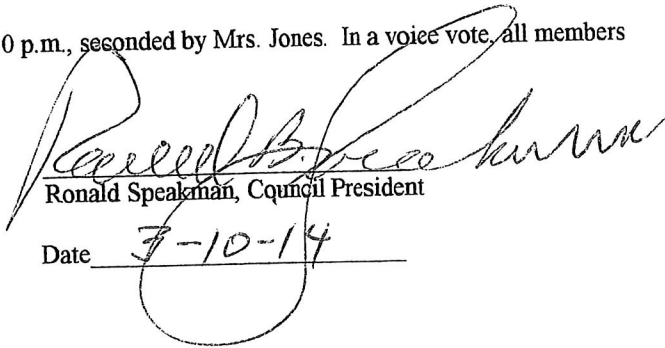 0 p.m., seconded by Mrs. Jones. In a voice vote, all members
Ronald B. Speakman
Ronald Speakman, Council President
Date 3-10-14